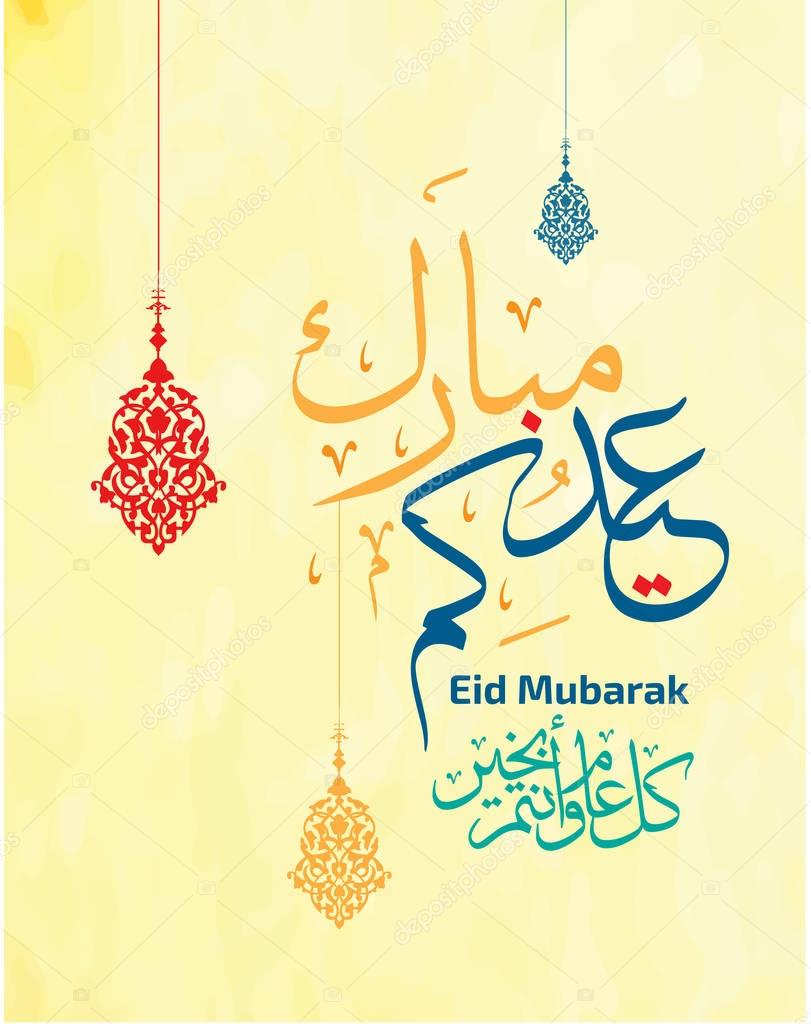 عيدكم
مبارك
Eid Mubarak
كل عام وأنتم بخير
depositphotos